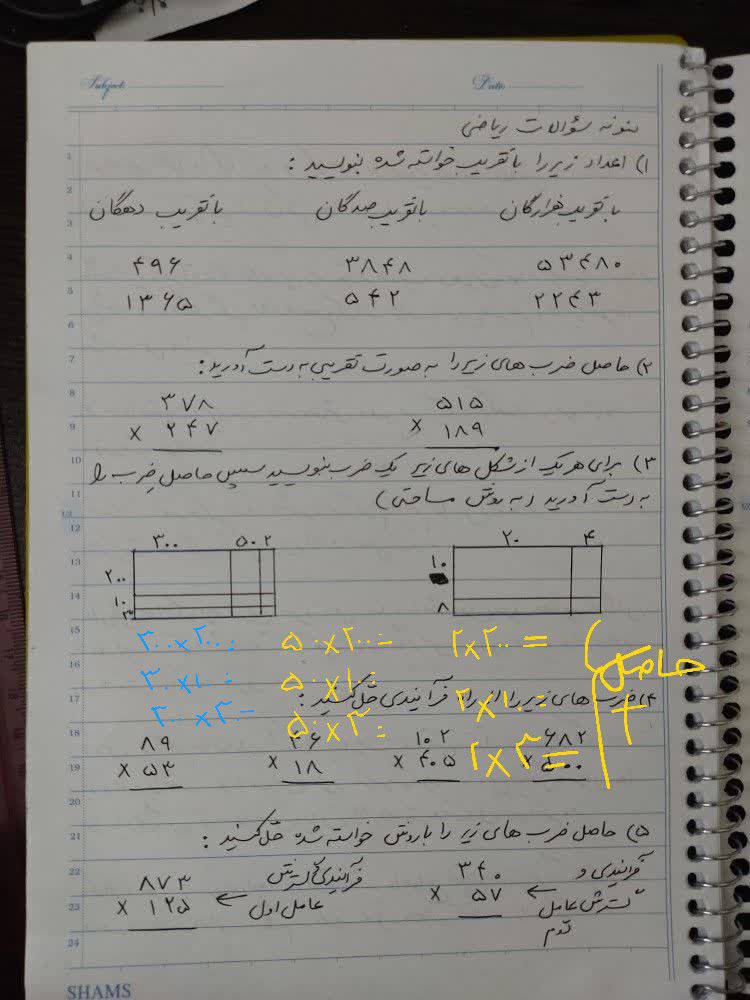 Subject:
Date:
نمونه سؤالات ریاضی
۱) اعداد زیر را با تقریب خواسته شده بنویسید :
با تقریب هزارگان با تقریب صدگان با تقریب دهگان
۵۳۴۸۰ ۳۸۴۸ ۴۹۶
۲۲۴۳ ۵۴۲ ۱۳۶۵
۲) حاصل ضرب های زیر را به صورت تقریبی به دست آورید :
۵۱۵ ۳۷۸
× ۱۸۹ × ۲۴۷
۳) برای هر یک از شکل های زیر یک ضرب بنویسید سپس حاصل ضرب را
به دست آورید (به روش مساحتی)
۳۰۰ ۵۰ ۲ ۲۰ ۴
۲۰۰ ۱۰
۱۰
۳ ۸
۳۰۰×۲۰۰= ۵۰×۲۰۰= ۲×۲۰۰=
۵۰×۱۰= ۲×۱۰=
۵۰×۳= ۲×۳=
حاصل
+
۴) ضرب های زیر را از راه فرآیندی حل کنید :
۶۸۲ ۱۰۲ ۸۹
× ۴۰۵ × ۱۸ × ۵۳
۵) حاصل ضرب های زیر را با روش خواسته شده حل کنید :
فرآیندی و ۳۴۰ فرآیندی گسترش ۸۷۳
گسترش عامل ← × ۵۷ عامل اول ← × ۱۲۵
دوم
SHAMS
1
2
3
4
5
6
7
8
9
10
11
12
13
14
15
16
17
18
19
20
21
22
23
24